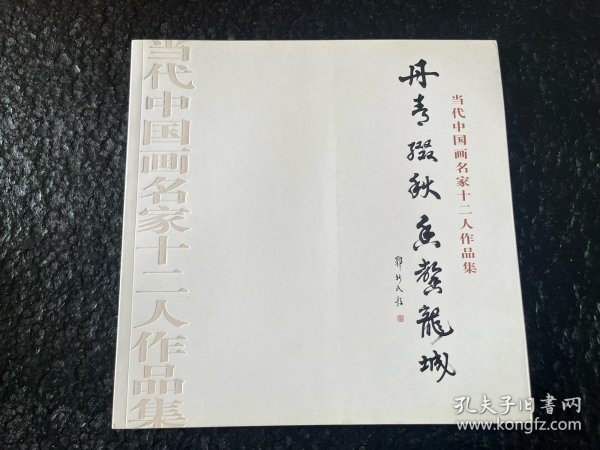 当代中国画名家十二人作品集
丹青缀秋香馨龙城
当代中国画名家十二人作品集
孔夫子旧书网
www.kongfz.com